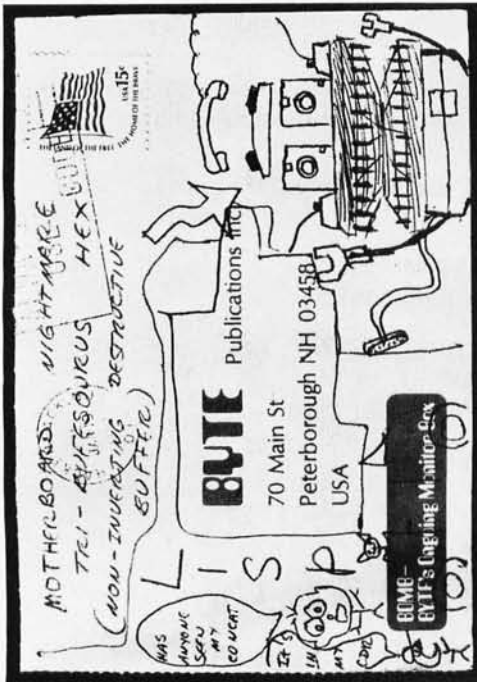 MOTHERBOARD NIGHTMARE
TRI-BUFFSOURUS HEX
(NON-INVERTING DESTRUCTIVE
BUFFER)
USA 15c
THE HOME OF THE BRAVE
BYTE Publications Inc
70 Main St
Peterborough NH 03458
USA
LISP
HAS
ANYONE
SEEN
MY
CONCAT
IT'S
IN
MY
CDR
BOMB—
BYTE's Ongoing Monitor Box